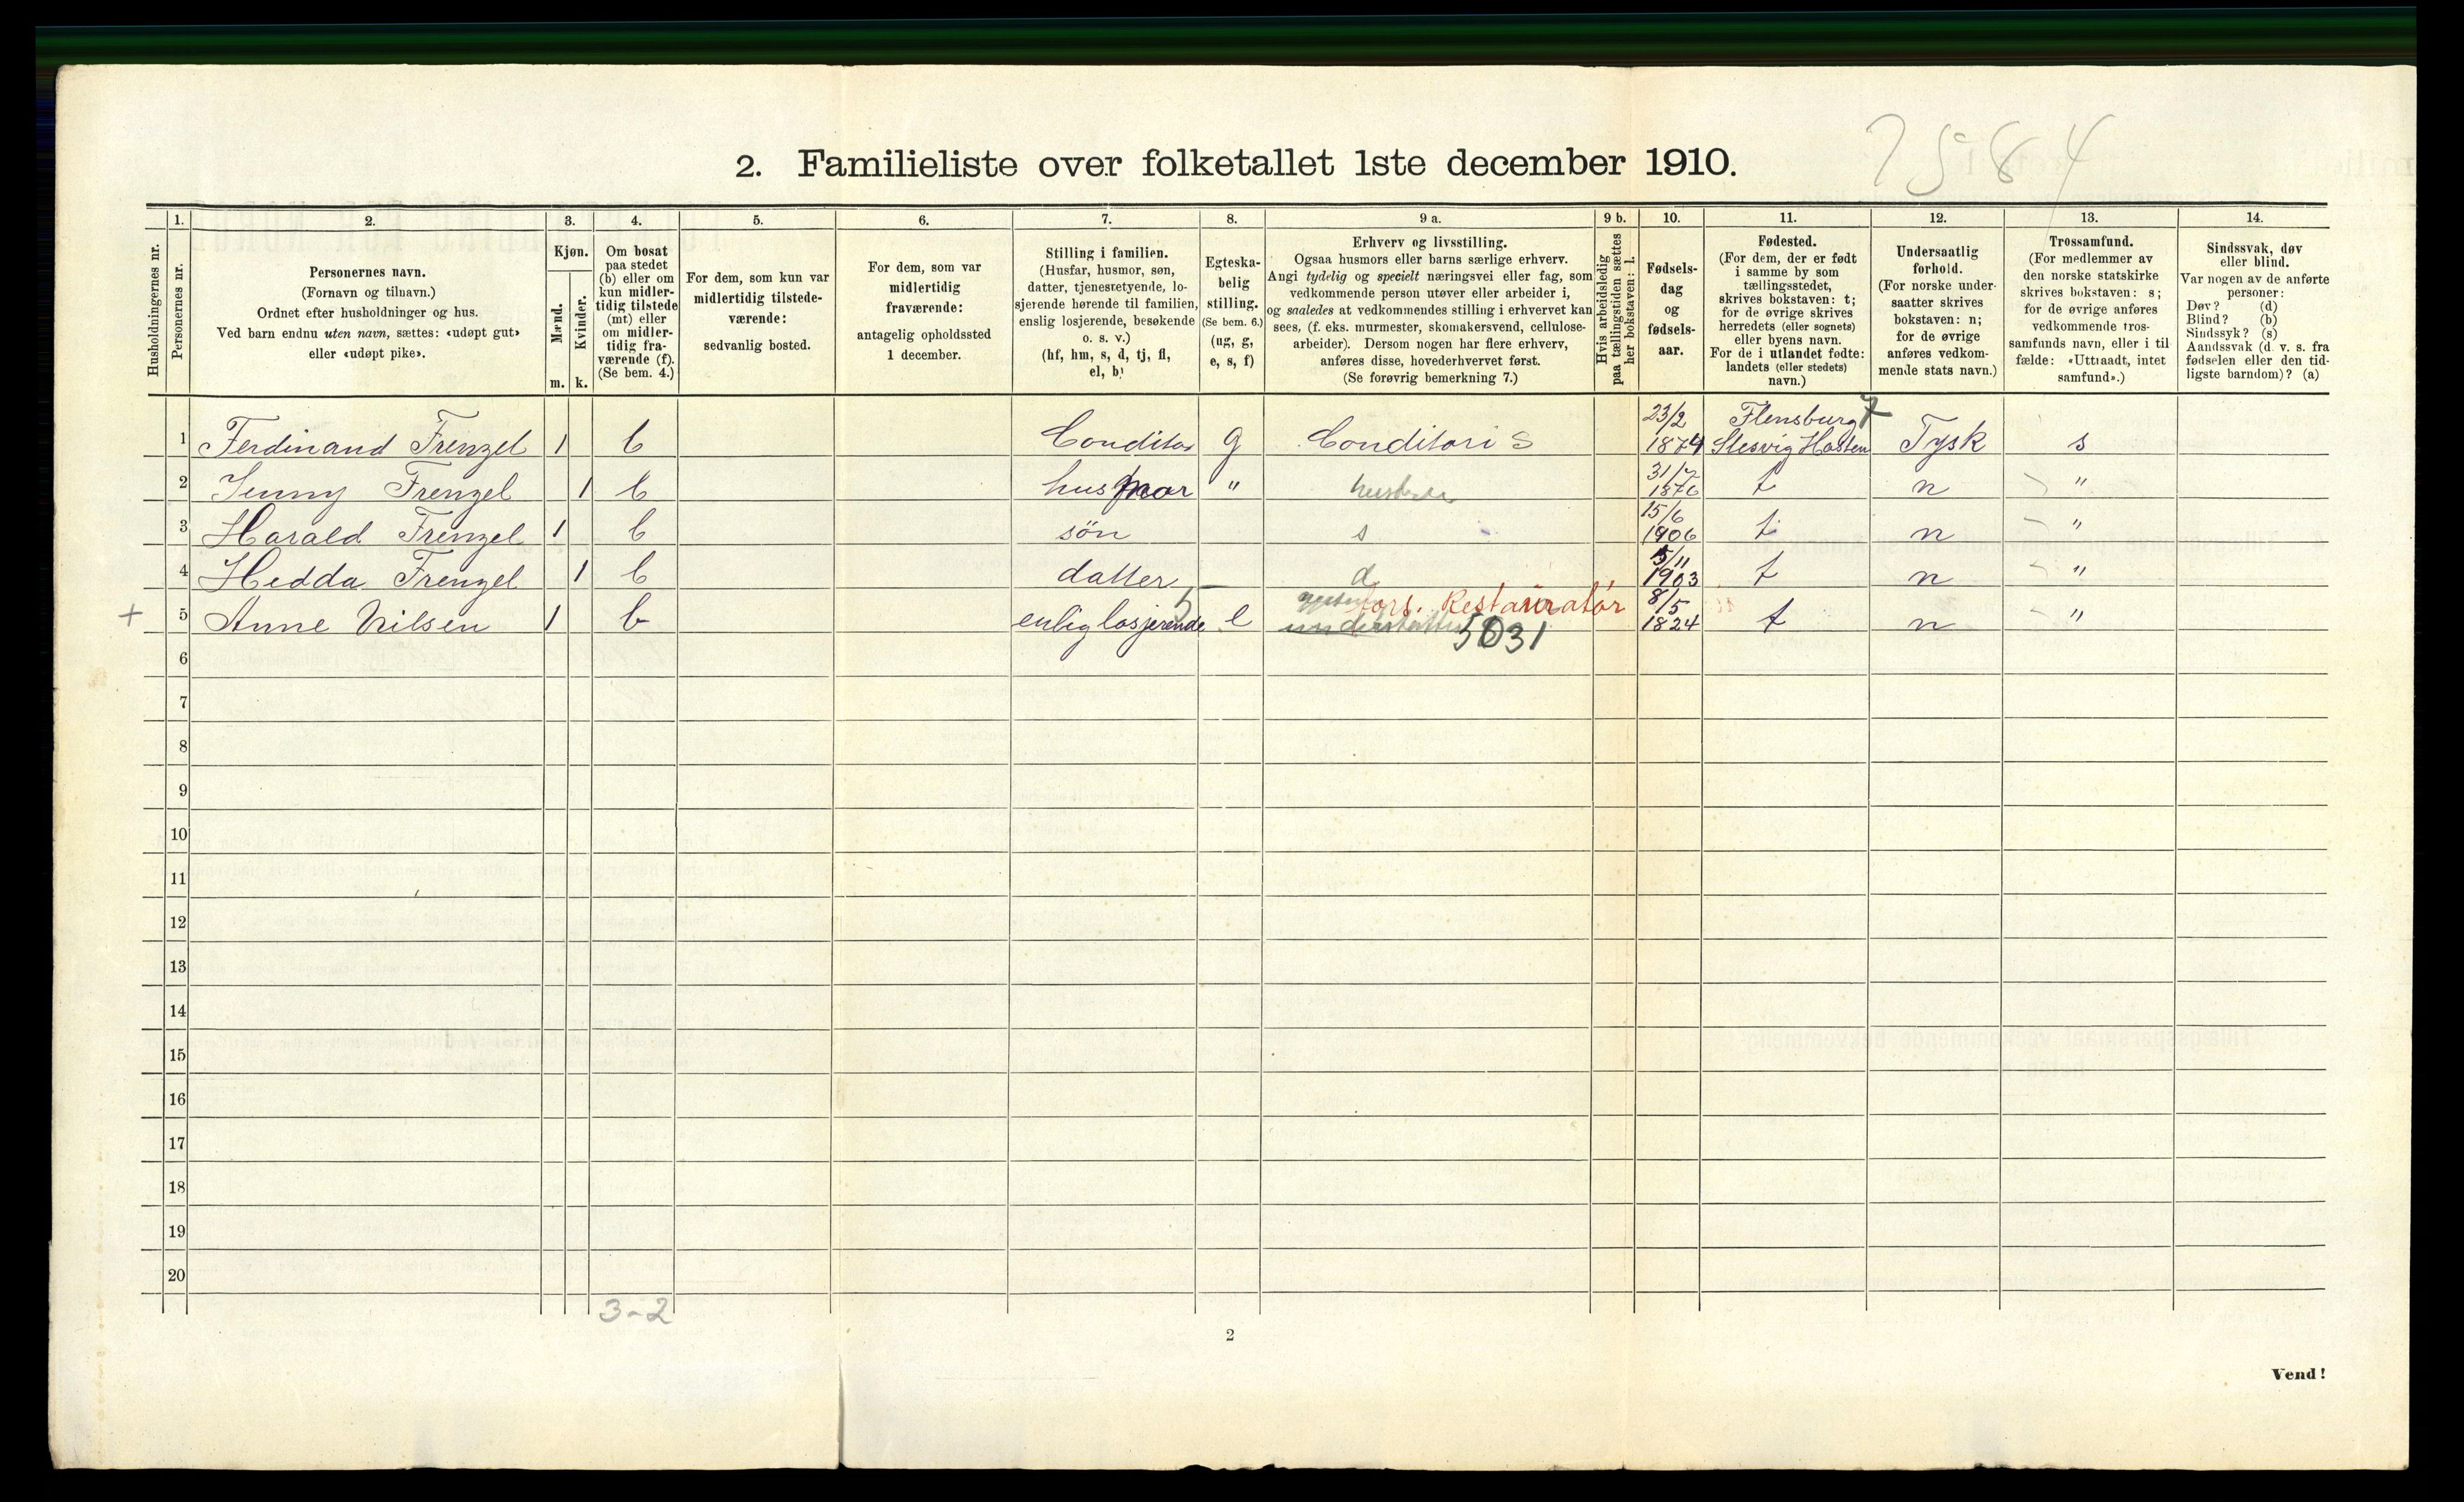 7584
2. Familieliste over folketallet 1ste december 1910.
Husholdningernes nr.
1.
Personernes nr.
2.
Personernes navn.
(Fornavn og tilnavn.)
Ordnet efter husholdninger og hus.
Ved barn endnu uten navn, sættes: «udøpt gut»
eller «udøpt pike».
3.
Kjøn.
Mænd.
m.
Kvinder.
k.
4.
Om bosat
paa stedet
(b) eller om
kun midler-
tidig tilstede
(mt) eller
om midler-
tidig fra-
værende (f).
(Se bem. 4.)
5.
For dem, som kun var
midlertidig tilstede-
værende:
sedvanlig bosted.
6.
For dem, som var
midlertidig
fraværende:
antagelig opholdssted
1 december.
7.
Stilling i familien.
(Husfar, husmor, søn,
datter, tjenestetyende, lo-
sjerende hørende til familien,
enslig losjerende, besøkende
o. s. v.)
(hf, hm, s, d, tj, fl,
el, b)
8.
Egteska-
belig
stilling.
(Se bem. 6.)
(ug, g,
e, s, f)
9 a.
Erhverv og livsstilling.
Ogsaa husmors eller barns særlige erhverv.
Angi tydelig og specielt næringsvei eller fag, som
vedkommende person utøver eller arbeider i,
og saaledes at vedkommendes stilling i erhvervet kan
sees, (f. eks. murmester, skomakersvend, cellulose-
arbeider). Dersom nogen har flere erhverv,
anføres disse, hovederhvervet først.
(Se forøvrig bemerkning 7.)
9 b.
Hvis arbeidsledig
paa tællingstiden sættes
her bokstaven: l.
10.
Fødsels-
dag
og
fødsels-
aar.
11.
Fødested.
(For dem, der er født
i samme by som
tællingsstedet,
skrives bokstaven: t;
for de øvrige skrives
herredets (eller sognets)
eller byens navn.
For de i utlandet fødte:
landets (eller stedets)
navn.)
12.
Undersaatlig
forhold.
(For norske under-
saatter skrives
bokstaven: n;
for de øvrige
anføres vedkom-
mende stats navn.)
13.
Trossamfund.
(For medlemmer av
den norske statskirke
skrives bokstaven: s;
for de øvrige anføres
vedkommende tros-
samfunds navn, eller i til-
fælde: «Uttraadt, intet
samfund».)
14.
Sindssvak, døv
eller blind.
Var nogen av de anførte
personer:
Døv? (d)
Blind? (b)
Sindssyk? (s)
Aandssvak (d. v. s. fra
fødselen eller den tid-
ligste barndom)? (a)
1 Ferdinand Frenzel 1 b Conditor g Conditori S 23/2 1874 Flensburg Slesvig Holsten 7 Tysk s
2 Jenny Frenzel 1 b husmor " 31/7 1876 t n "
3 Harald Frenzel 1 b søn s 15/6 1906 t n "
4 Hedda Frenzel 1 b datter d 5/11 1903 t n "
+ 5 Anne Nilsen 1 b enlig losjerende 5 e fors. Restauratør understøttes 5031 8/5 1824 t n "
6
7
8
9
10
11
12
13
14
15
16
17
18
19
20
3-2
2
Vend!